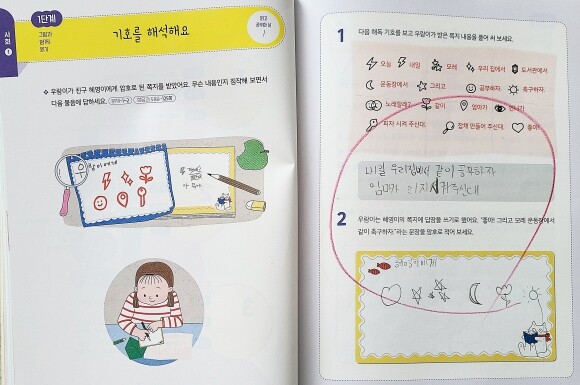 사회 1
1단계
그림과
함께
읽기
기호를 해석해요
공부한 날
/
❖ 우람이가 친구 혜영이에게 암호로 된 쪽지를 받았어요. 무슨 내용인지 짐작해 보면서
다음 물음에 답하세요.
우람이에게
1 다음 해독 기호를 보고 우람이가 받은 쪽지 내용을 풀어 써 보세요.
오늘 내일 모레 우리 집에서 도서관에서
운동장에서 그리고 공부하자. 축구하자.
노래할래? 같이 엄마가 언니가
피자 시켜 주신대. 잡채 만들어 주신대. 좋아!
내일 우리집에서 같이 공부하자
엄마가 피자시켜주신대
2 우람이는 혜영이의 쪽지에 답장을 쓰기로 했어요. "좋아! 그리고 모레 운동장에서
같이 축구하자."라는 문장을 암호로 적어 보세요.
혜영이에게